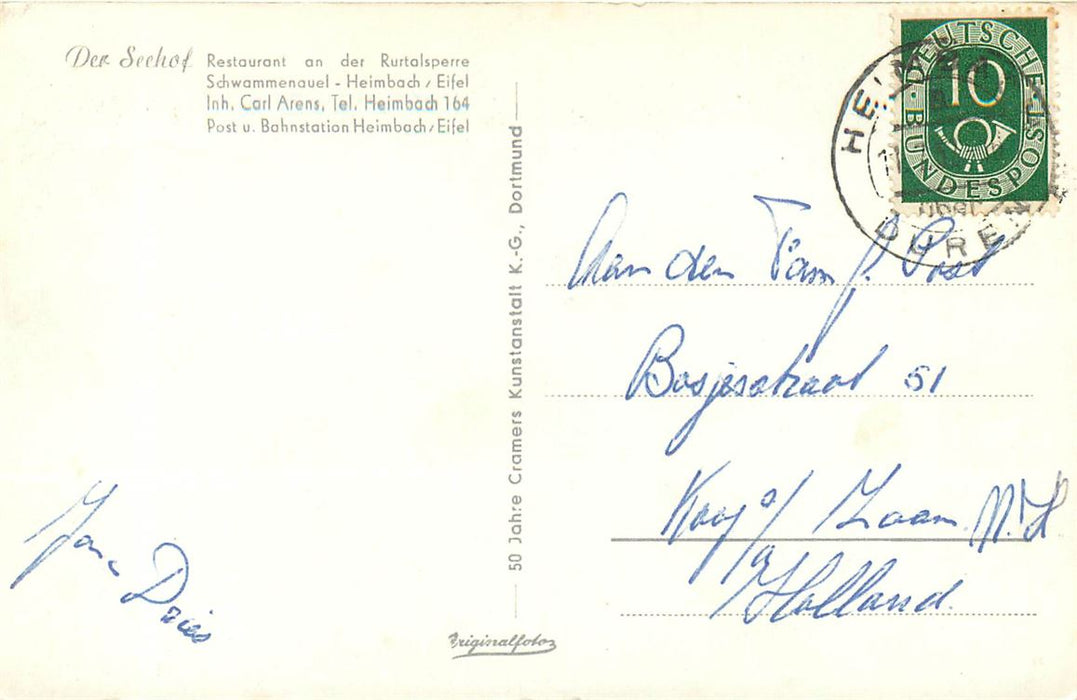 Der Seehof Restaurant an der Rurtalsperre
Schwammenauel - Heimbach / Eifel
Inh. Carl Arens, Tel. Heimbach 164
Post u. Bahnstation Heimbach / Eifel
50 Jahre Cramers Kunstanstalt K.-G., Dortmund
DEUTSCHE BUNDESPOST
10
über
DÜREN
Aan den Fam. P. Post
Bosjesstraat 51
Koog a/ Zaan N.H
Holland
Dries
Originalfoto